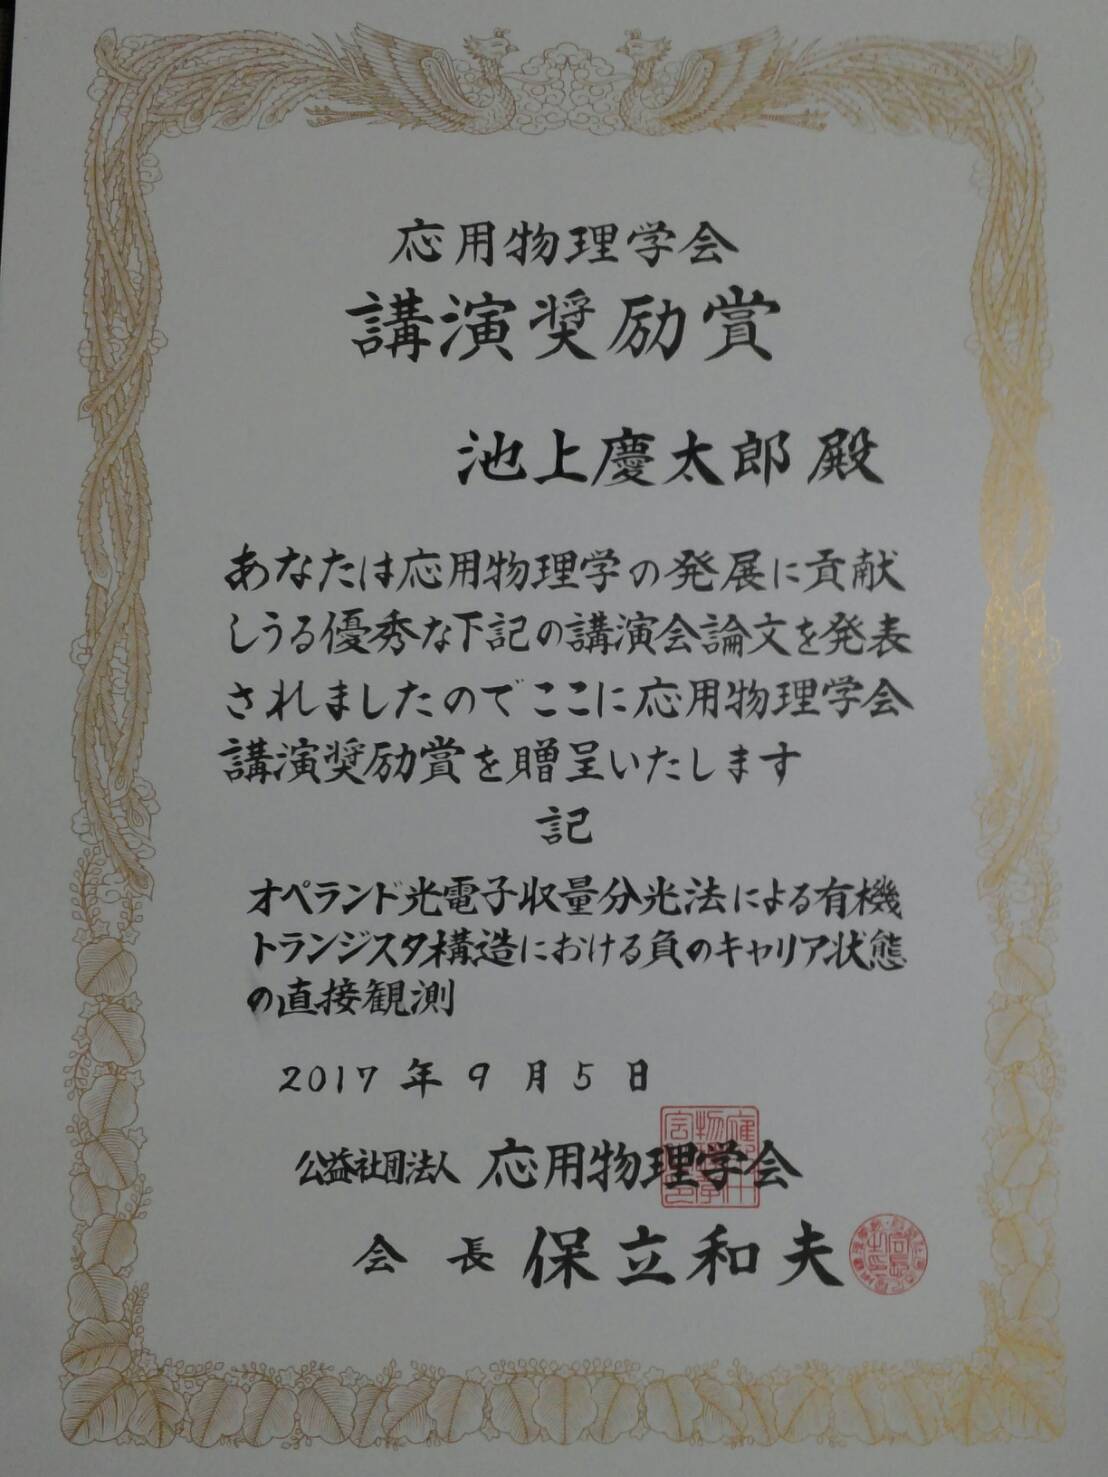 応用物理学会
講演奨励賞
池上慶太郎 殿
あなたは応用物理学の発展に貢献
しうる優秀な下記の講演会論文を発表
されましたのでここに応用物理学会
講演奨励賞を贈呈いたします
記
オペランド光電子収量分光法による有機
トランジスタ構造における負のキャリア状態
の直接観測
2017 年 9 月 5 日
公益社団法人 応用物理学会
会 長 保立和夫